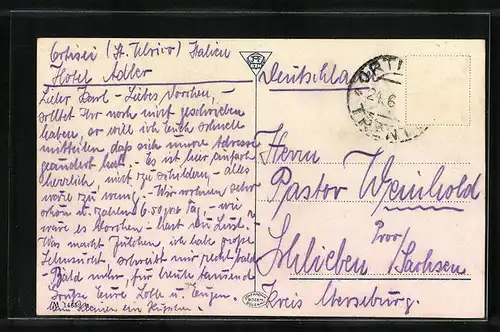 Ortisei (St. Ulrico) Italien
Hotel Adler
Lieber Karl – Liebes Dorchen, –
solltet Ihr noch nicht geschrieben
haben, so will ich Euch schnell
mitteilen, daß sich unsere Adresse
geändert hat. – Es ist hier einfach
herrlich, nicht zu schildern, – alles
wäre zu wenig. – Wir wohnen sehr
schön u. zahlen 6.50 pro Tag, – wie
wäre es Dorchen – hast Du Lust. –
Was macht Julchen, ich habe große
Sehnsucht. schreibt mir recht bald
Bald mehr, für heute tausend
Grüße Eure Lotte u. Eugen.
Dem Kleinen ein Küßchen.
Deutschland
ORTI
24.6
TRENT
Herrn
Pastor Weinhold
Prov/
Schlieben/Sachsen
Kreis Merseburg.